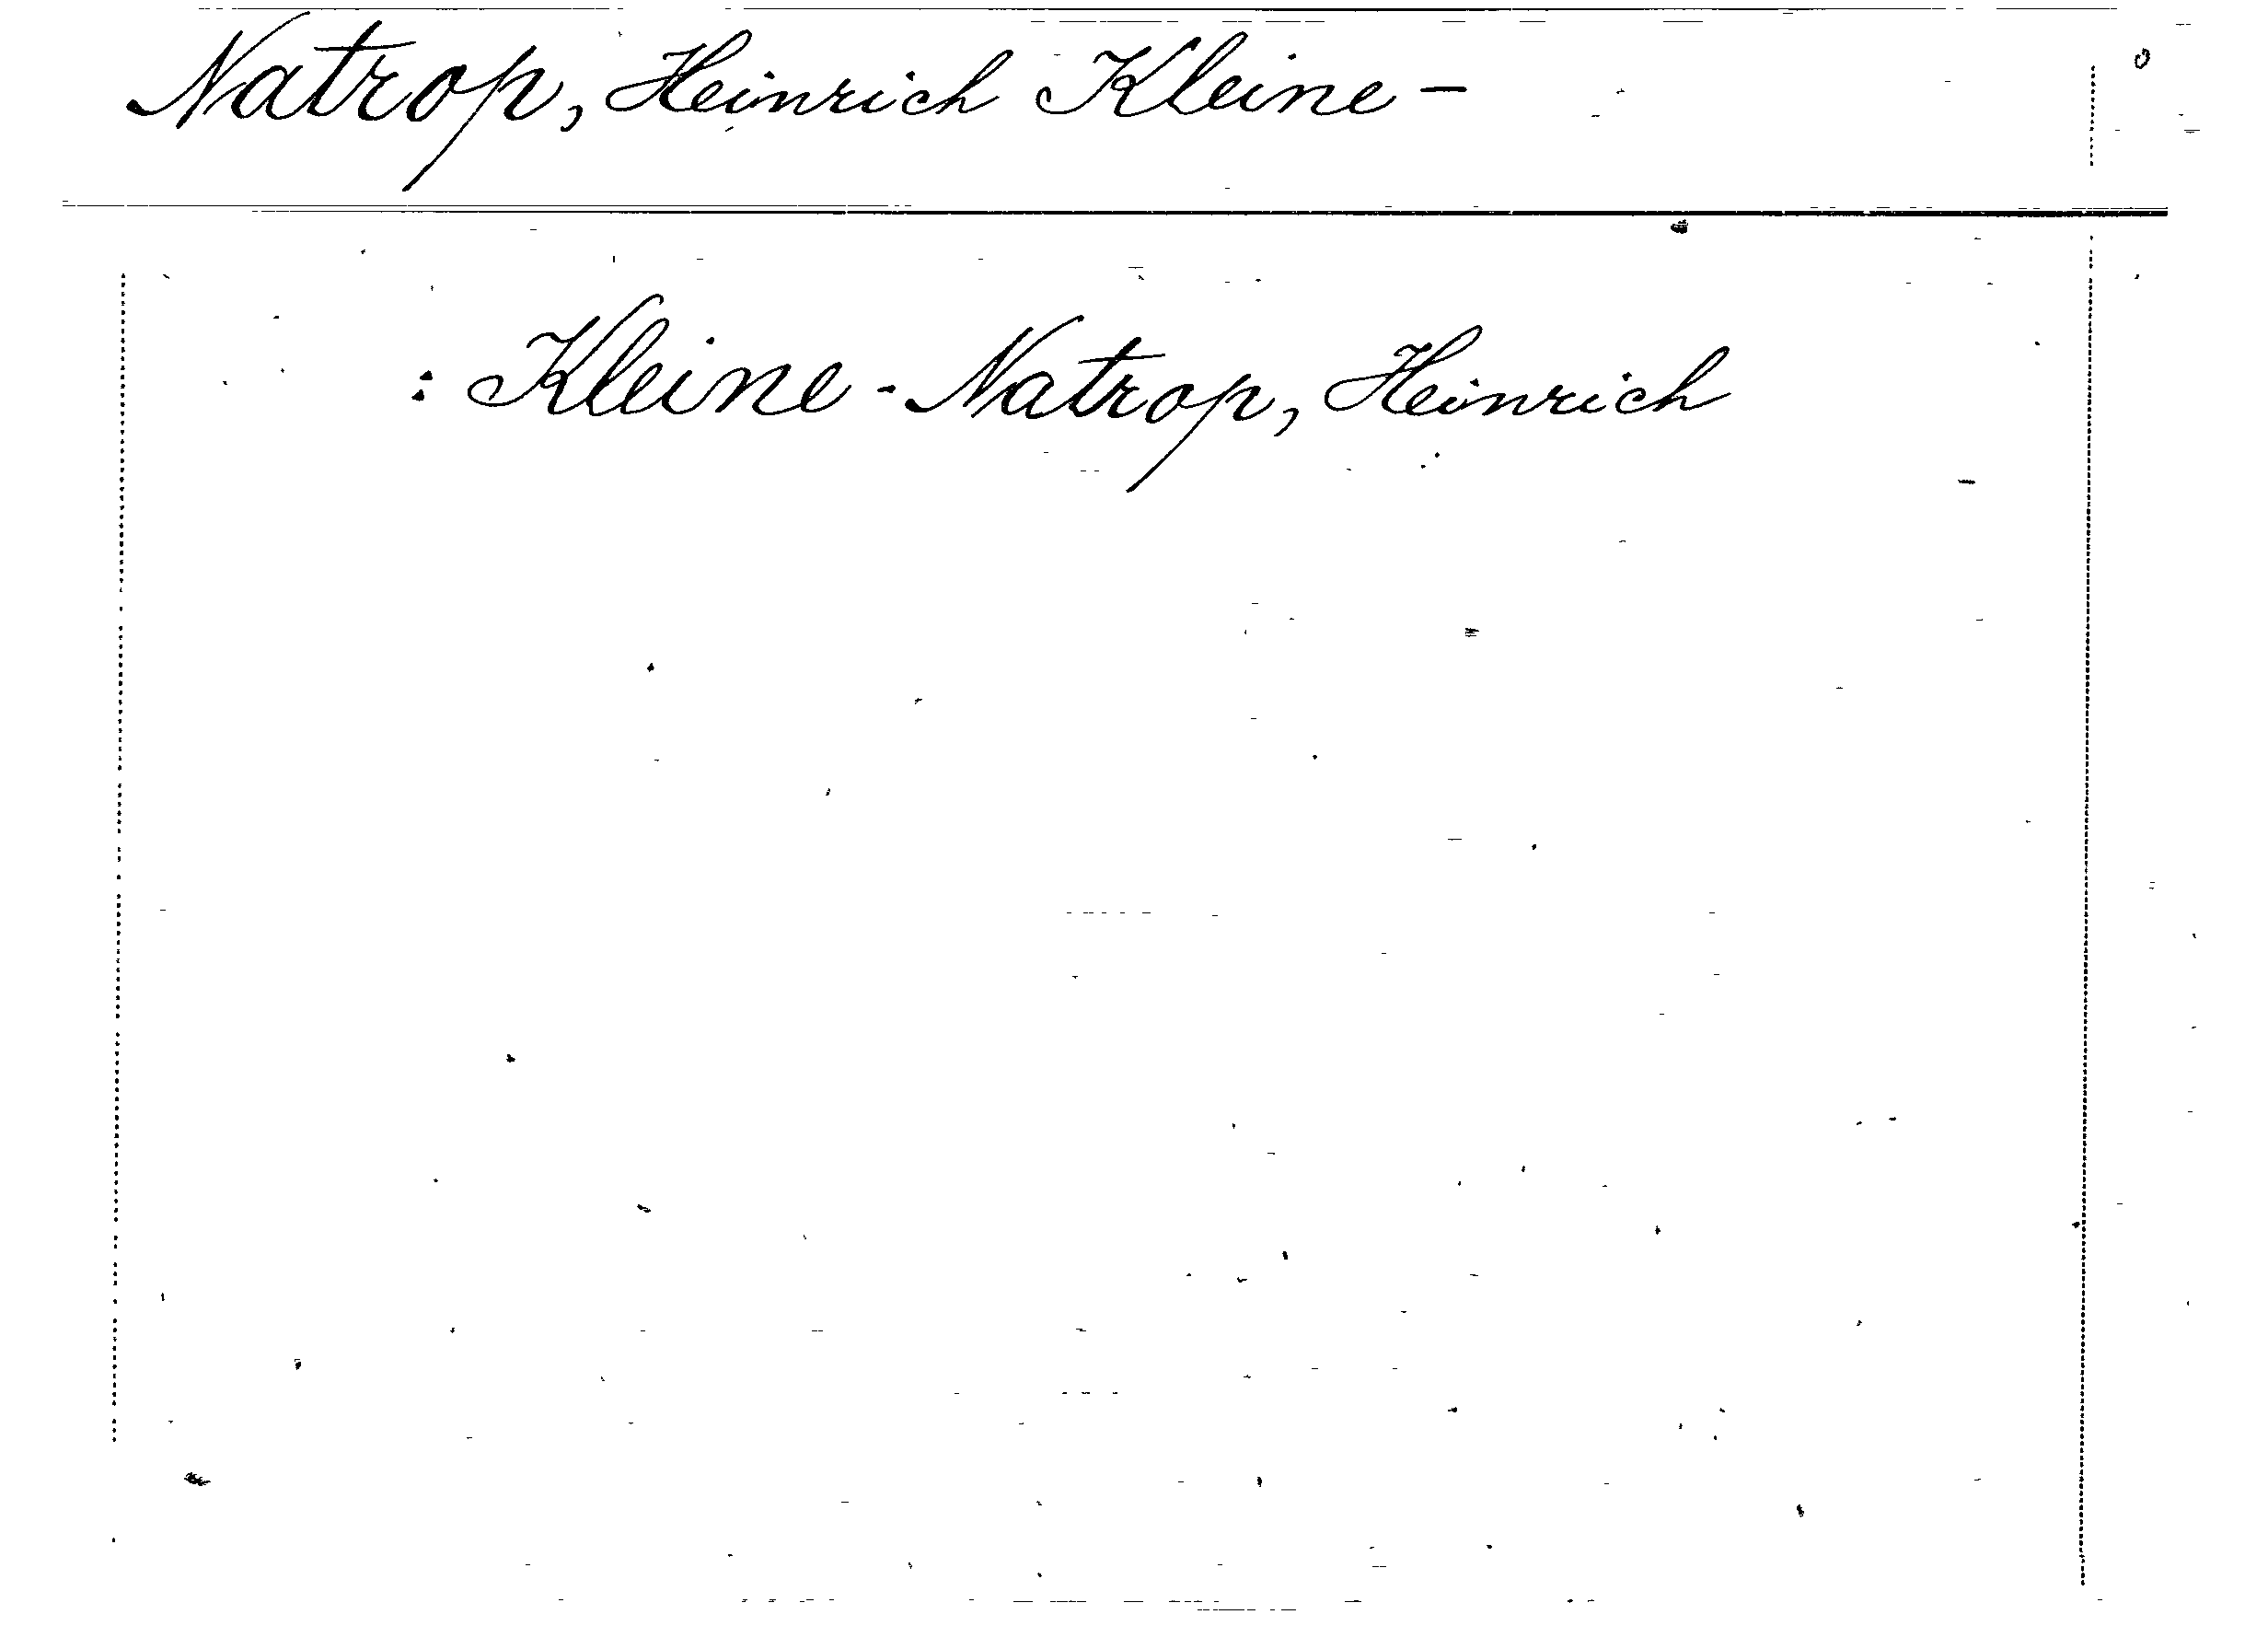 Natrop, Heinrich Kleine-
: Kleine-Natrop, Heinrich